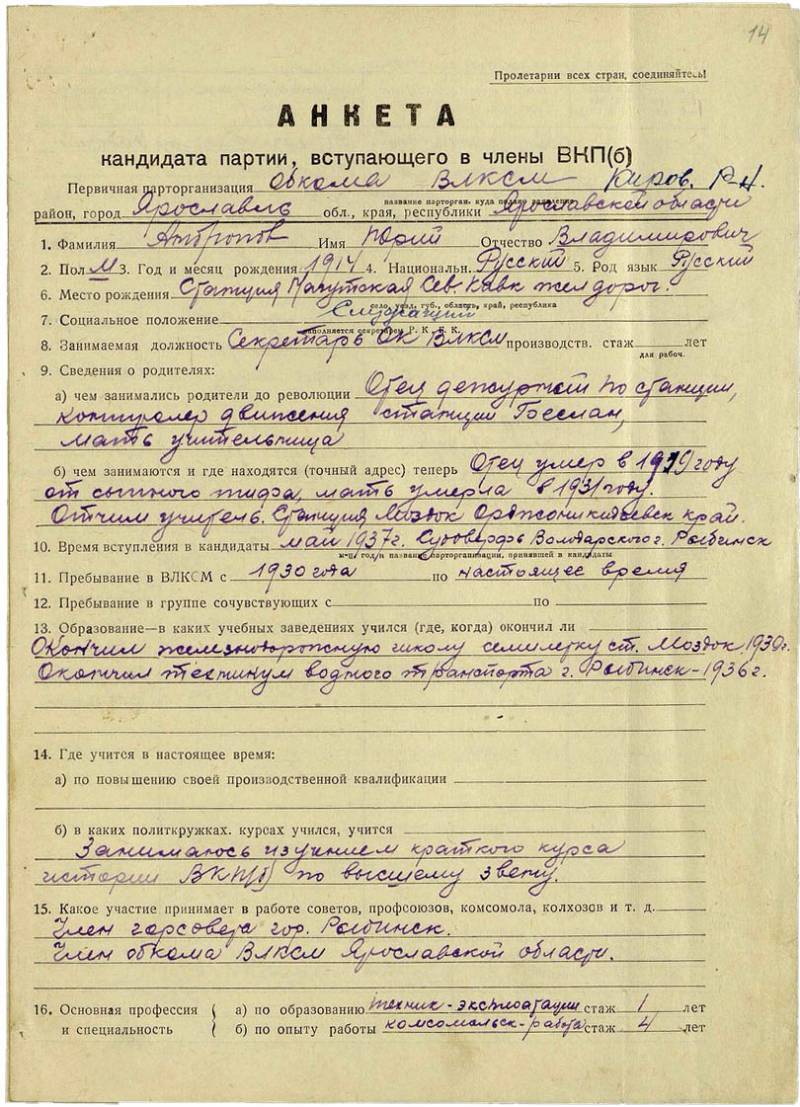 14
Пролетарии всех стран, соединяйтесь!
АНКЕТА
кандидата партии, вступающего в члены ВКП(б)
Первичная парторганизация обкома ВЛКСМ Киров. р-н.
название парторган. куда подано заявление
район, город Ярославль обл., края, республики Ярославской области
1. Фамилия Андропов Имя Юрий Отчество Владимирович
2. Пол М 3. Год и месяц рождения 1914 4. Национальн. Русский 5. Род язык Русский
6. Место рождения Станция Нагутская Сев. Кавк жел дорог.
село, уезд, губ., область, край, республика
7. Социальное положение Служащий
заполняется секретарем Р. К. В. К.
8. Занимаемая должность Секретарь ОК ВЛКСМ производств. стаж лет
для рабоч.
9. Сведения о родителях:
а) чем занимались родители до революции Отец дежурный по станции,
контролер движения станции Беслан,
мать учительница
б) чем занимаются и где находятся (точный адрес) теперь Отец умер в 1919 году
от сыпного тифа, мать умерла в 1931 году.
Отчим учитель. Станция Моздок Орджоникидзевск край.
10. Время вступления в кандидаты май 1937 г. Судоверфь Володарского г. Рыбинск
м-ц/год/и название парторганизации, принявшей в кандидаты
11. Пребывание в ВЛКСМ с 1930 года по настоящее время
12. Пребывание в группе сочувствующих с по
13. Образование—в каких учебных заведениях учился (где, когда) окончил ли
Окончил железнодорожную школу семилетку ст. Моздок 1930г.
Окончил техникум водного транспорта г. Рыбинск-1936 г.
14. Где учится в настоящее время:
а) по повышению своей производственной квалификации
б) в каких политкружках. курсах учился, учится
Занимаюсь изучением краткого курса
истории ВКП(б) по высшему звену.
15. Какое участие принимает в работе советов, профсоюзов, комсомола, колхозов и т. д.
Член горсовета гор. Рыбинск.
Член обкома ВЛКСМ Ярославской области.
16. Основная профессия а) по образованию техник-эксплоатации стаж 1 лет
и специальность б) по опыту работы комсомольск-работа стаж 4 лет